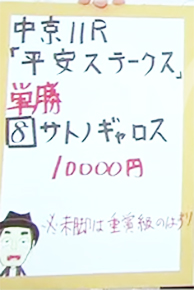 中京11R
「平安ステークス」
単勝
8サトノギャロス
10000円
※末脚は重賞級のはず!